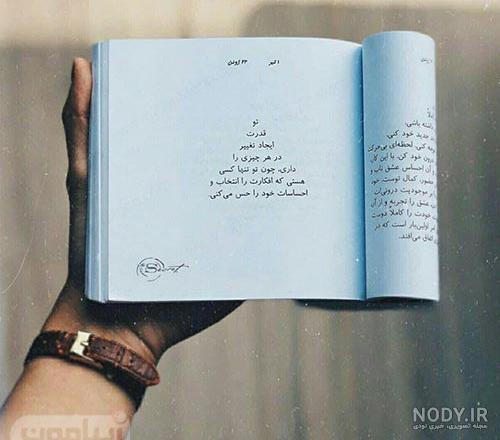 ۱ تیر ژوئن
تو
قدرت
ایجاد تغییر
در هر چیزی را
داری، چون تو تنها کسی
هستی که افکارت را انتخاب و
احساسات خود را حس می‌کنی.
Secret
باشی.
جدید خود کنی.
کنی. لحظه‌ای بی‌حرکت
خود کن. با این کار
آن احساس عشق ناب و
حضور، کمال توست. خود
موجودیت درونی‌ات
عشق را تجربه و از آن
خودت را کاملاً دوست
اولین‌بار است که در
اتفاق می‌افتد.
NODY.IR
مجله تصویری، خبری نودی